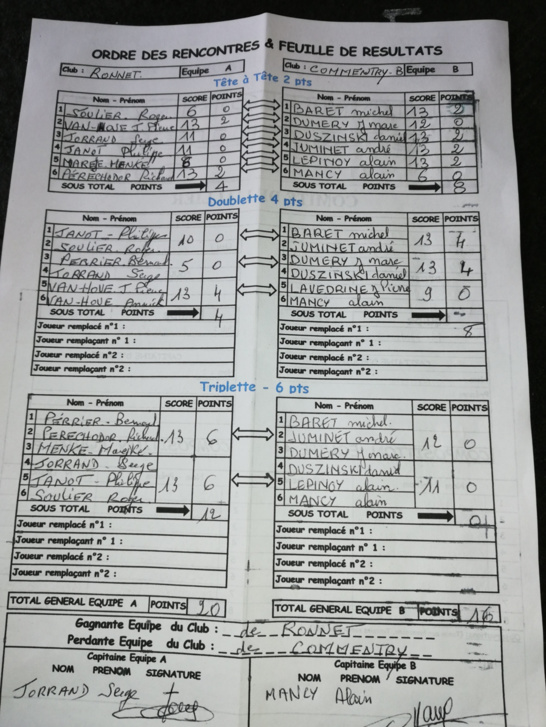 ORDRE DES RENCONTRES & FEUILLE DE RESULTATS
Club : RONNET Equipe A
Club : COMMENTRY.B Equipe B
Tête à Tête 2 pts
Nom - Prénom SCORE POINTS
1 SOULIER Roger 6 0
2 VAN-HOVE J. Pierre 13 2
3 JORRAND Serge 11 0
4 JANOT Philippe 11 0
5 MENKE 8 0
6 PERECHODOR Richard 13 2
SOUS TOTAL POINTS 4
Nom - Prénom SCORE POINTS
1 BARET michel 13 2
2 DUMERY J marc 12 0
3 DUSZINSKI daniel 13 2
4 JUMINET andré 13 2
5 LEPINOY alain 13 2
6 MANCY alain 6 0
SOUS TOTAL POINTS 8
Doublette 4 pts
Nom - Prénom SCORE POINTS
1 JANOT - Philippe 10 0
2 SOULIER Roger
3 PERRIER Bernard 5 0
4 JORRAND Serge
5 VAN-HOVE J. Pierre 13 4
6 VAN-HOVE Annick
SOUS TOTAL POINTS 4
Joueur remplacé n°1 :
Joueur remplaçant n° 1 :
Joueur remplacé n°2 :
Joueur remplaçant n°2 :
Nom - Prénom SCORE POINTS
1 BARET michel 13 4
2 JUMINET andré
3 DUMERY J marc 13 4
4 DUSZINSKI daniel
5 LAVEDRINE J Pierre 9 0
6 MANCY alain
SOUS TOTAL POINTS
Joueur remplacé n°1 : 8
Joueur remplaçant n° 1 :
Joueur remplacé n°2 :
Joueur remplaçant n°2 :
Triplette - 6 pts
Nom - Prénom SCORE POINTS
1 PERRIER - Bernard
2 PERECHODOR Richard 13 6
3 MENKE - Mareike
4 JORRAND - Serge
5 JANOT - Philippe 13 6
6 SOULIER Roger
SOUS TOTAL POINTS 12
Joueur remplacé n°1 :
Joueur remplaçant n° 1 :
Joueur remplacé n°2 :
Joueur remplaçant n°2 :
Nom - Prénom SCORE POINTS
1 BARET michel
2 JUMINET andré 12 0
3 DUMERY J marc
4 DUSZINSKI daniel
5 LEPINOY alain 11 0
6 MANCY alain
SOUS TOTAL POINTS 0
Joueur remplacé n°1 :
Joueur remplaçant n°1 :
Joueur remplacé n°2 :
Joueur remplaçant n°2 :
TOTAL GENERAL EQUIPE A POINTS 20
TOTAL GENERAL EQUIPE B POINTS 16
Gagnante Equipe du Club : de RONNET
Perdante Equipe du Club : de COMMENTRY
Capitaine Equipe A
NOM PRENOM SIGNATURE
JORRAND Serge
Capitaine Equipe B
NOM PRENOM SIGNATURE
MANCY Alain